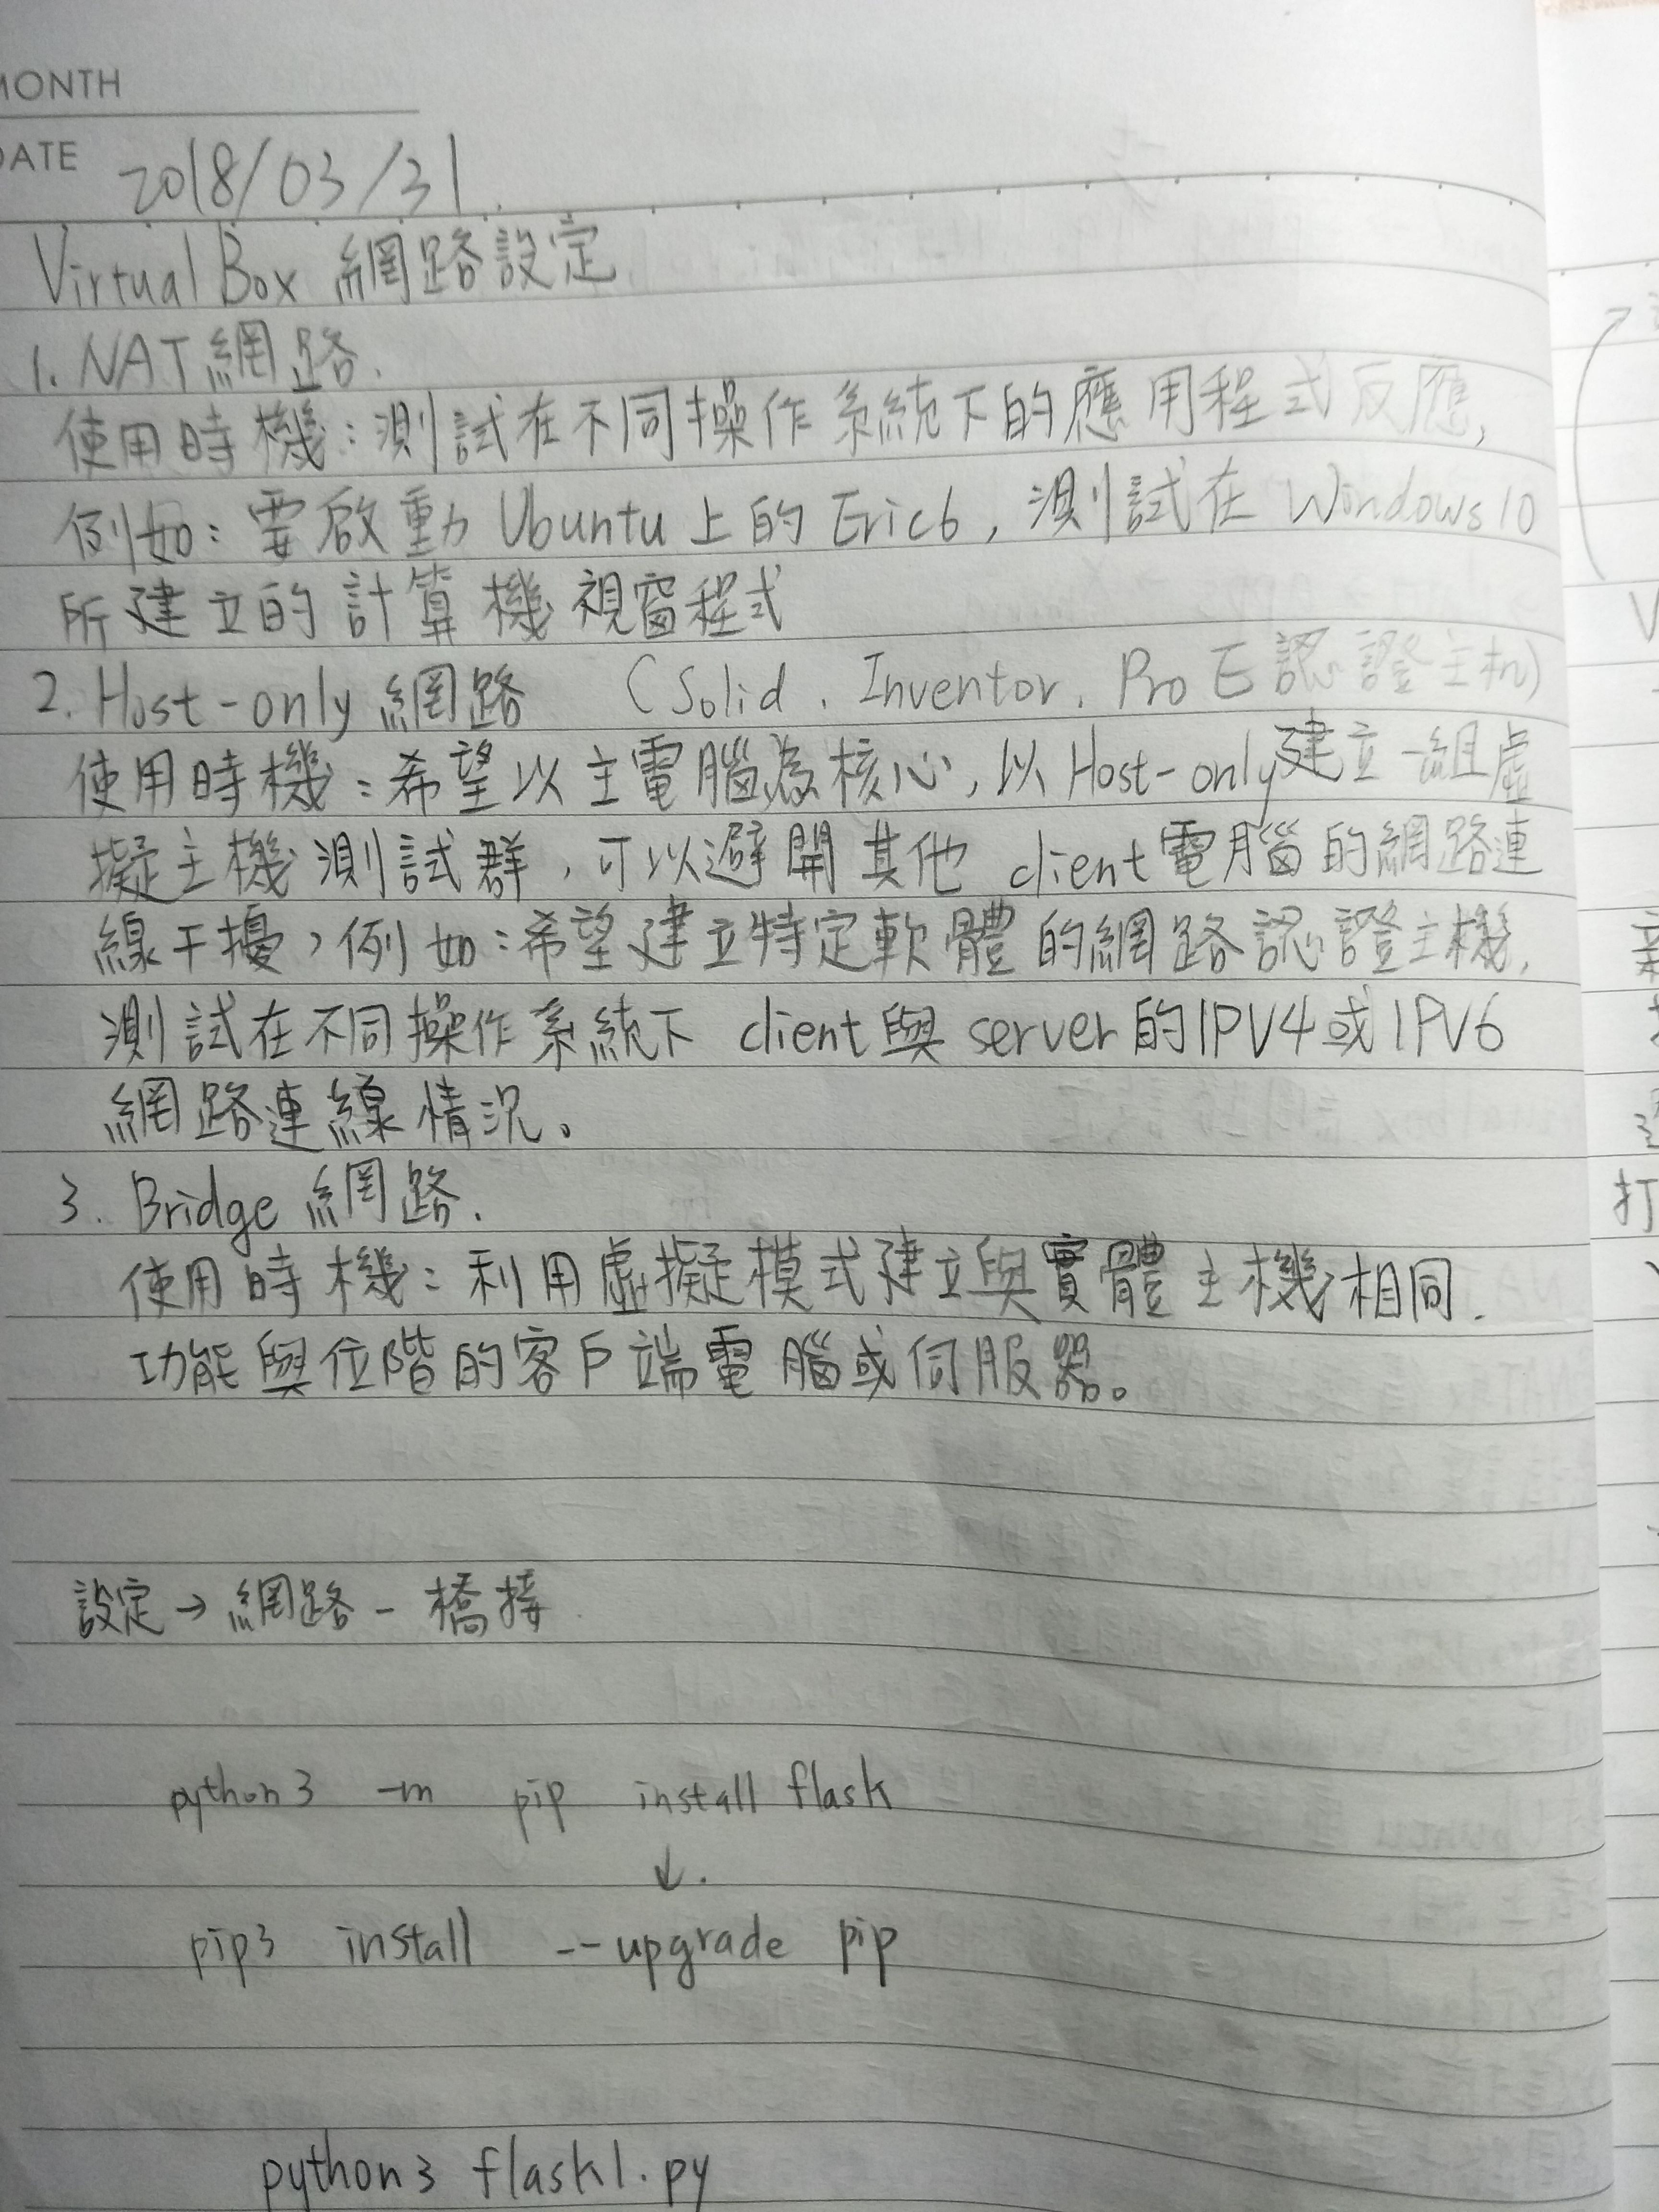 MONTH
DATE 2018/03/31.
Virtual Box 網路設定
1. NAT網路.
使用時機:測試在不同操作系統下的應用程式反應,
例如:要啟動Ubuntu上的Eric6,測試在Windows10
所建立的計算機視窗程式
2. Host-only 網路 (Solid、Inventor、Pro E認證主机)
使用時機:希望以主電腦為核心,以Host-only建立一組虛
擬主機測試群,可以避開其他client電腦的網路連
線干擾,例如:希望建立特定軟體的網路認證主機,
測試在不同操作系統下 client與server的IPV4或IPV6
網路連線情況。
3. Bridge網路.
使用時機:利用虛擬模式建立與實體主機相同.
功能與位階的客戶端電腦或伺服器。
設定→網路-橋接
python3 -m pip install flask
↓.
pip3 install --upgrade pip
python3 flask1.py
打